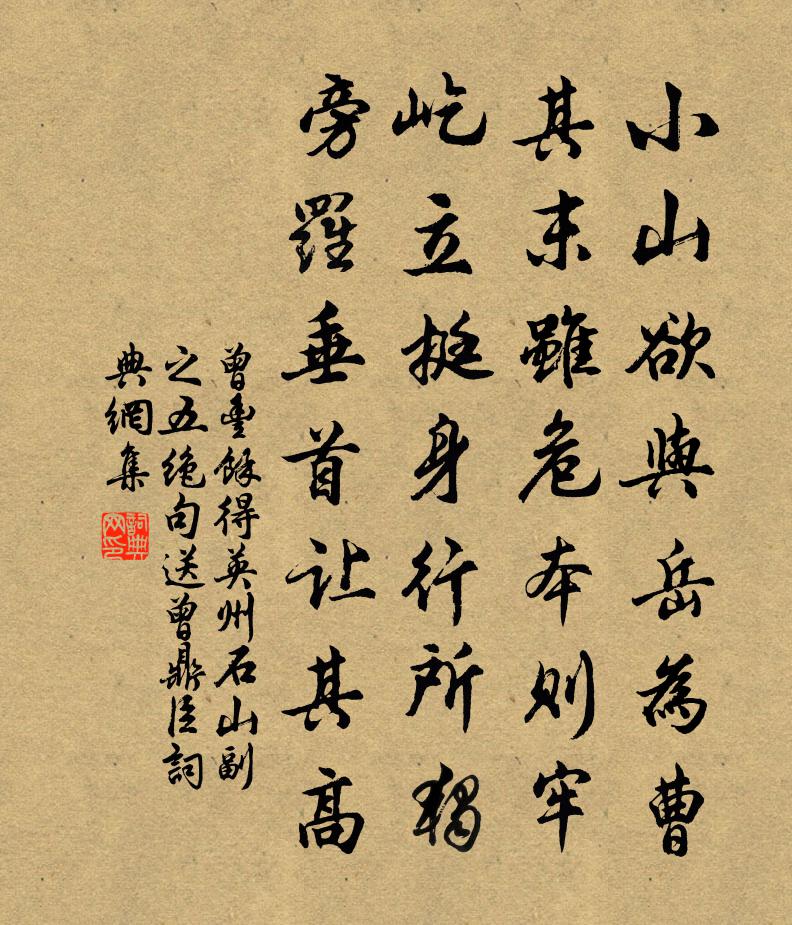 小山欲與岳為曹
其末雖危本則牢
屹立挺身行所獨
旁羅垂首让其高
曾豐餘得英州石山副
之五绝句送曾鼎臣詞
典網集
詞典网印